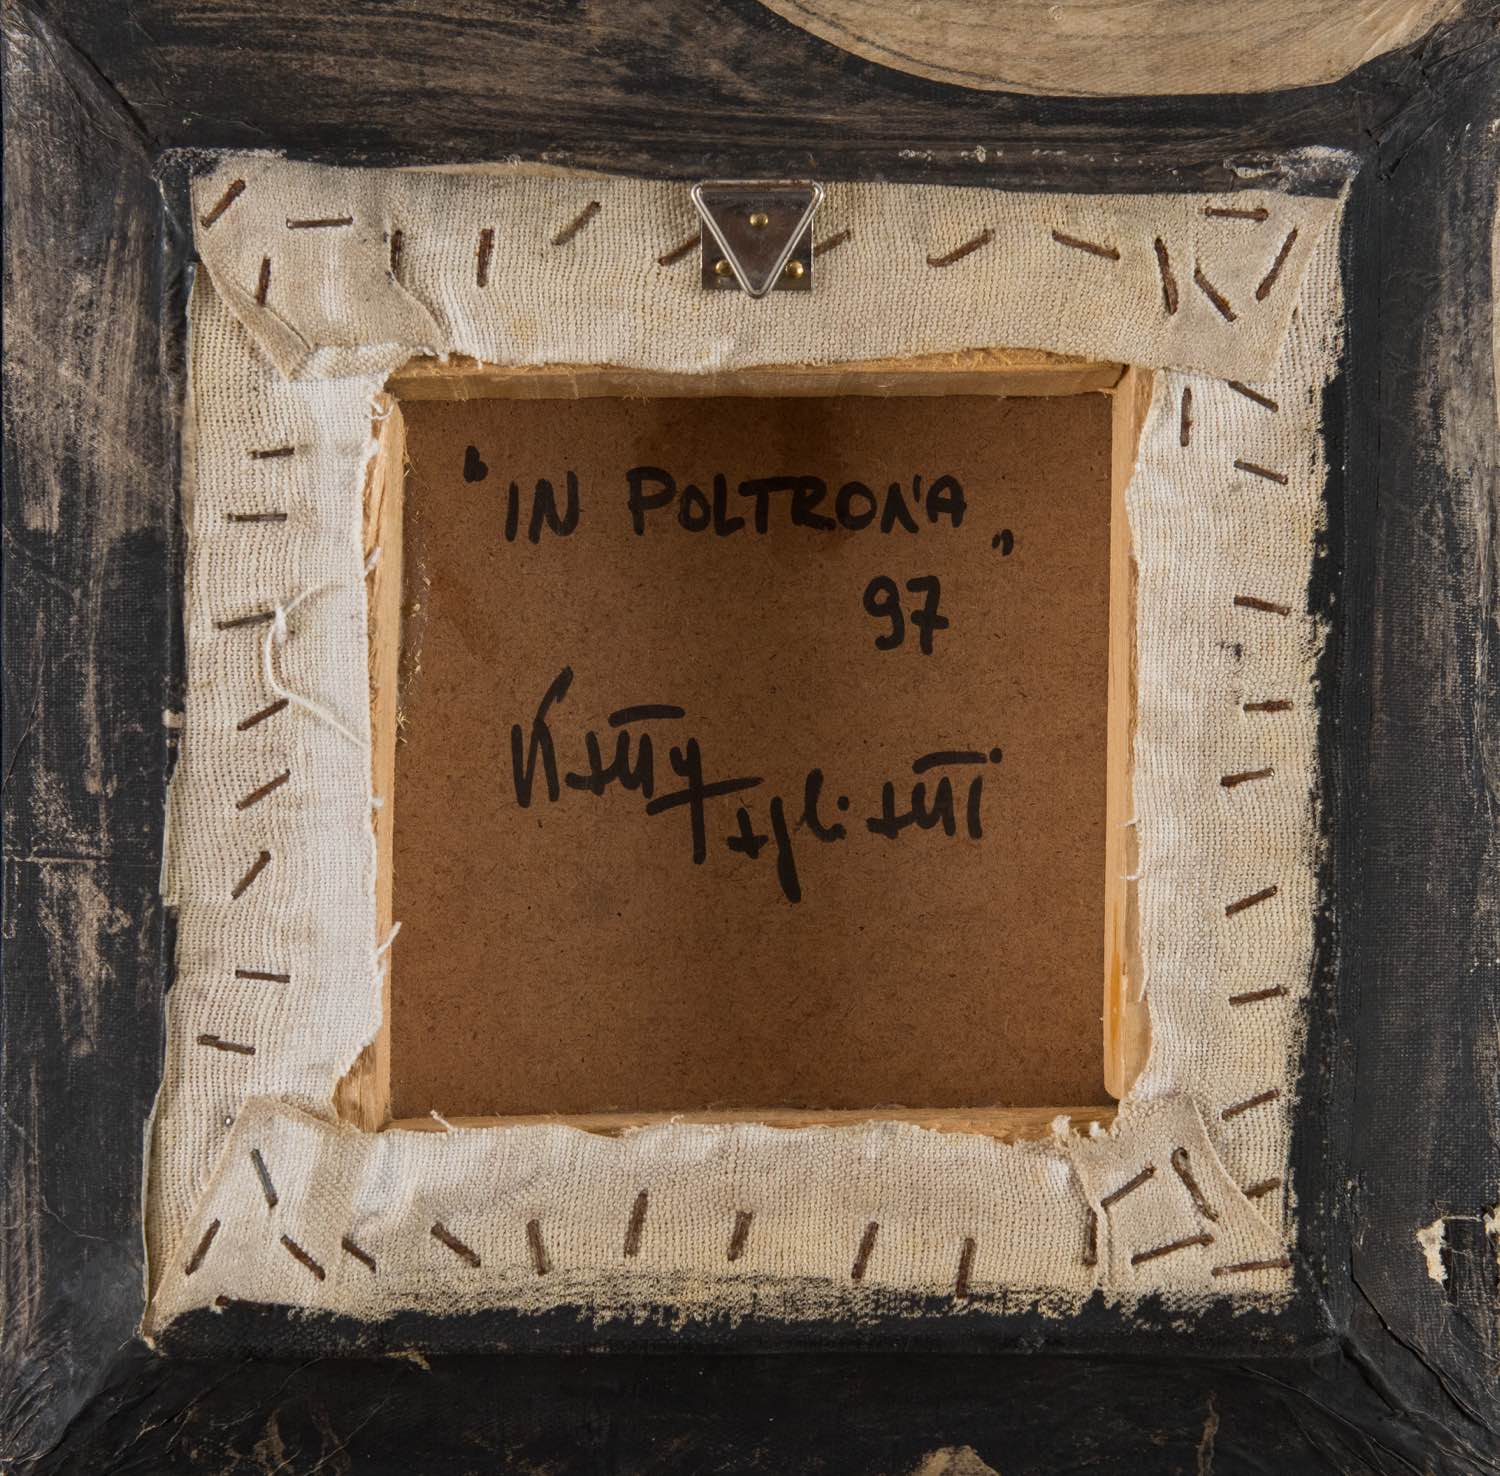 "IN POLTRONA"
97
Ketty Tagliatti